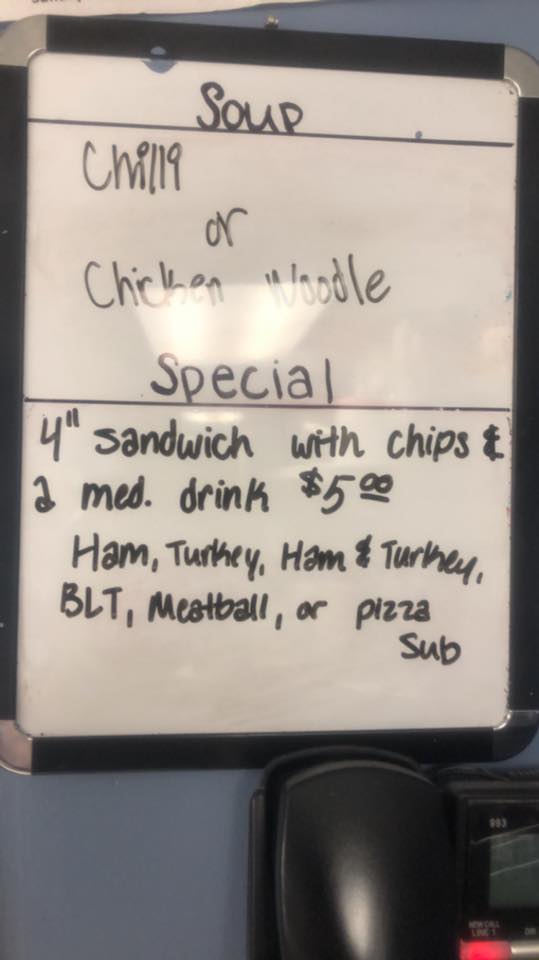 Soup
Chilli
or
Chicken Noodle
Special
4" sandwich with chips &
a med. drink $5.00
Ham, Turkey, Ham & Turkey,
BLT, Meatball, or pizza
Sub
993
NEW CALL
LINE 1